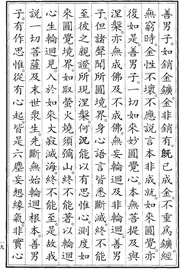 善男子如銷金鑛金非銷有既已成金不重為鑛經
無窮時金性不壞不應說言本非成就如來圓覺亦
復如是善男子一切如來妙圓覺心本無菩提及與
涅槃亦無成佛及不成佛無妄輪迴及非輪迴善男
子但諸聲聞所圓境界身心語言皆悉斷滅終不能
至彼之親證所現涅槃何況能以有思惟心測度如
來圓覺境界如取螢火燒須彌山終不能著以輪迴
心生輪迴見入於如來大寂滅海終不能至是故我
說一切菩薩及末世眾生先斷無始輪迴根本善男
子有作思惟從有心起皆是六塵妄想緣氣非實心